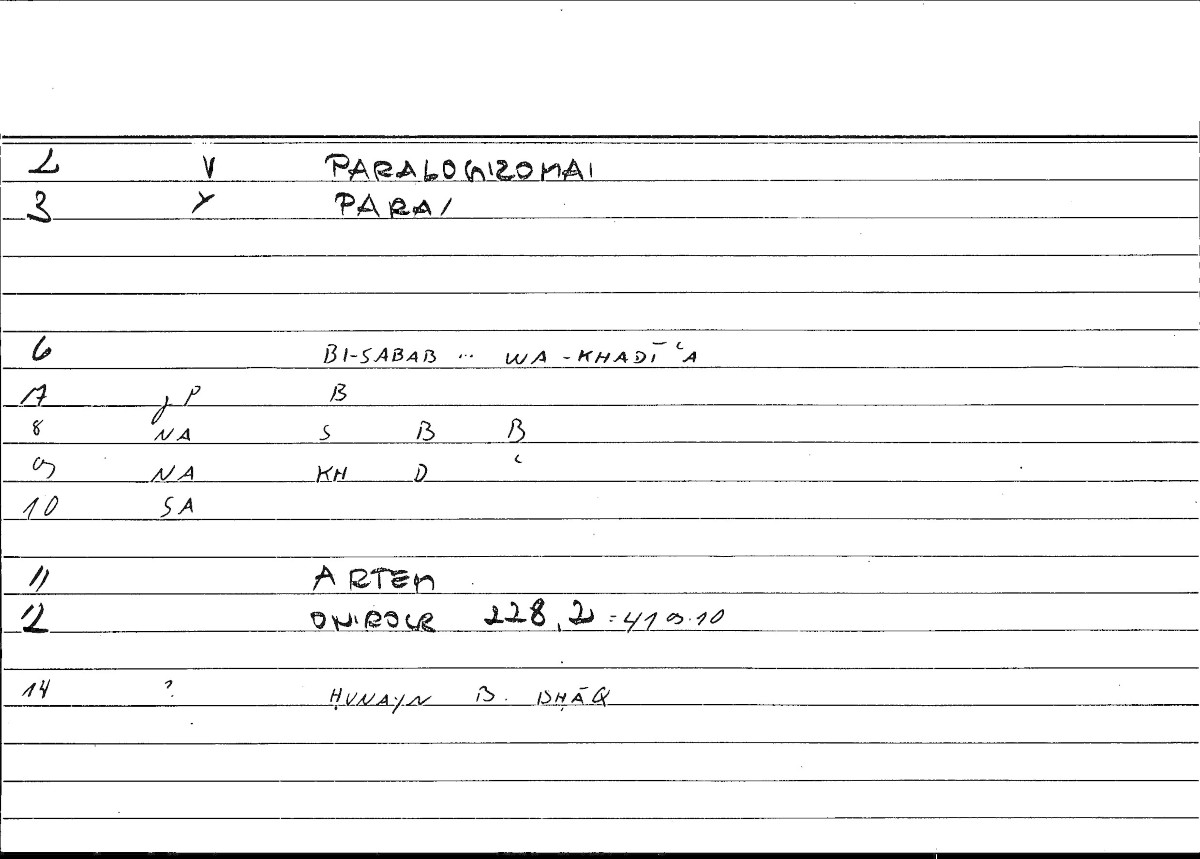 2 V PARALOGIZOMAI
3 Y PARA/
6 BI-SABAB ... WA-KHADĪʿA
7 JP B
8 NA S B B
9 NA KH D ʿ
10 SA
11 ARTEM
12 ONIROCR 228,2=419.10
14 ? ḤUNAYN B. ISḤĀQ